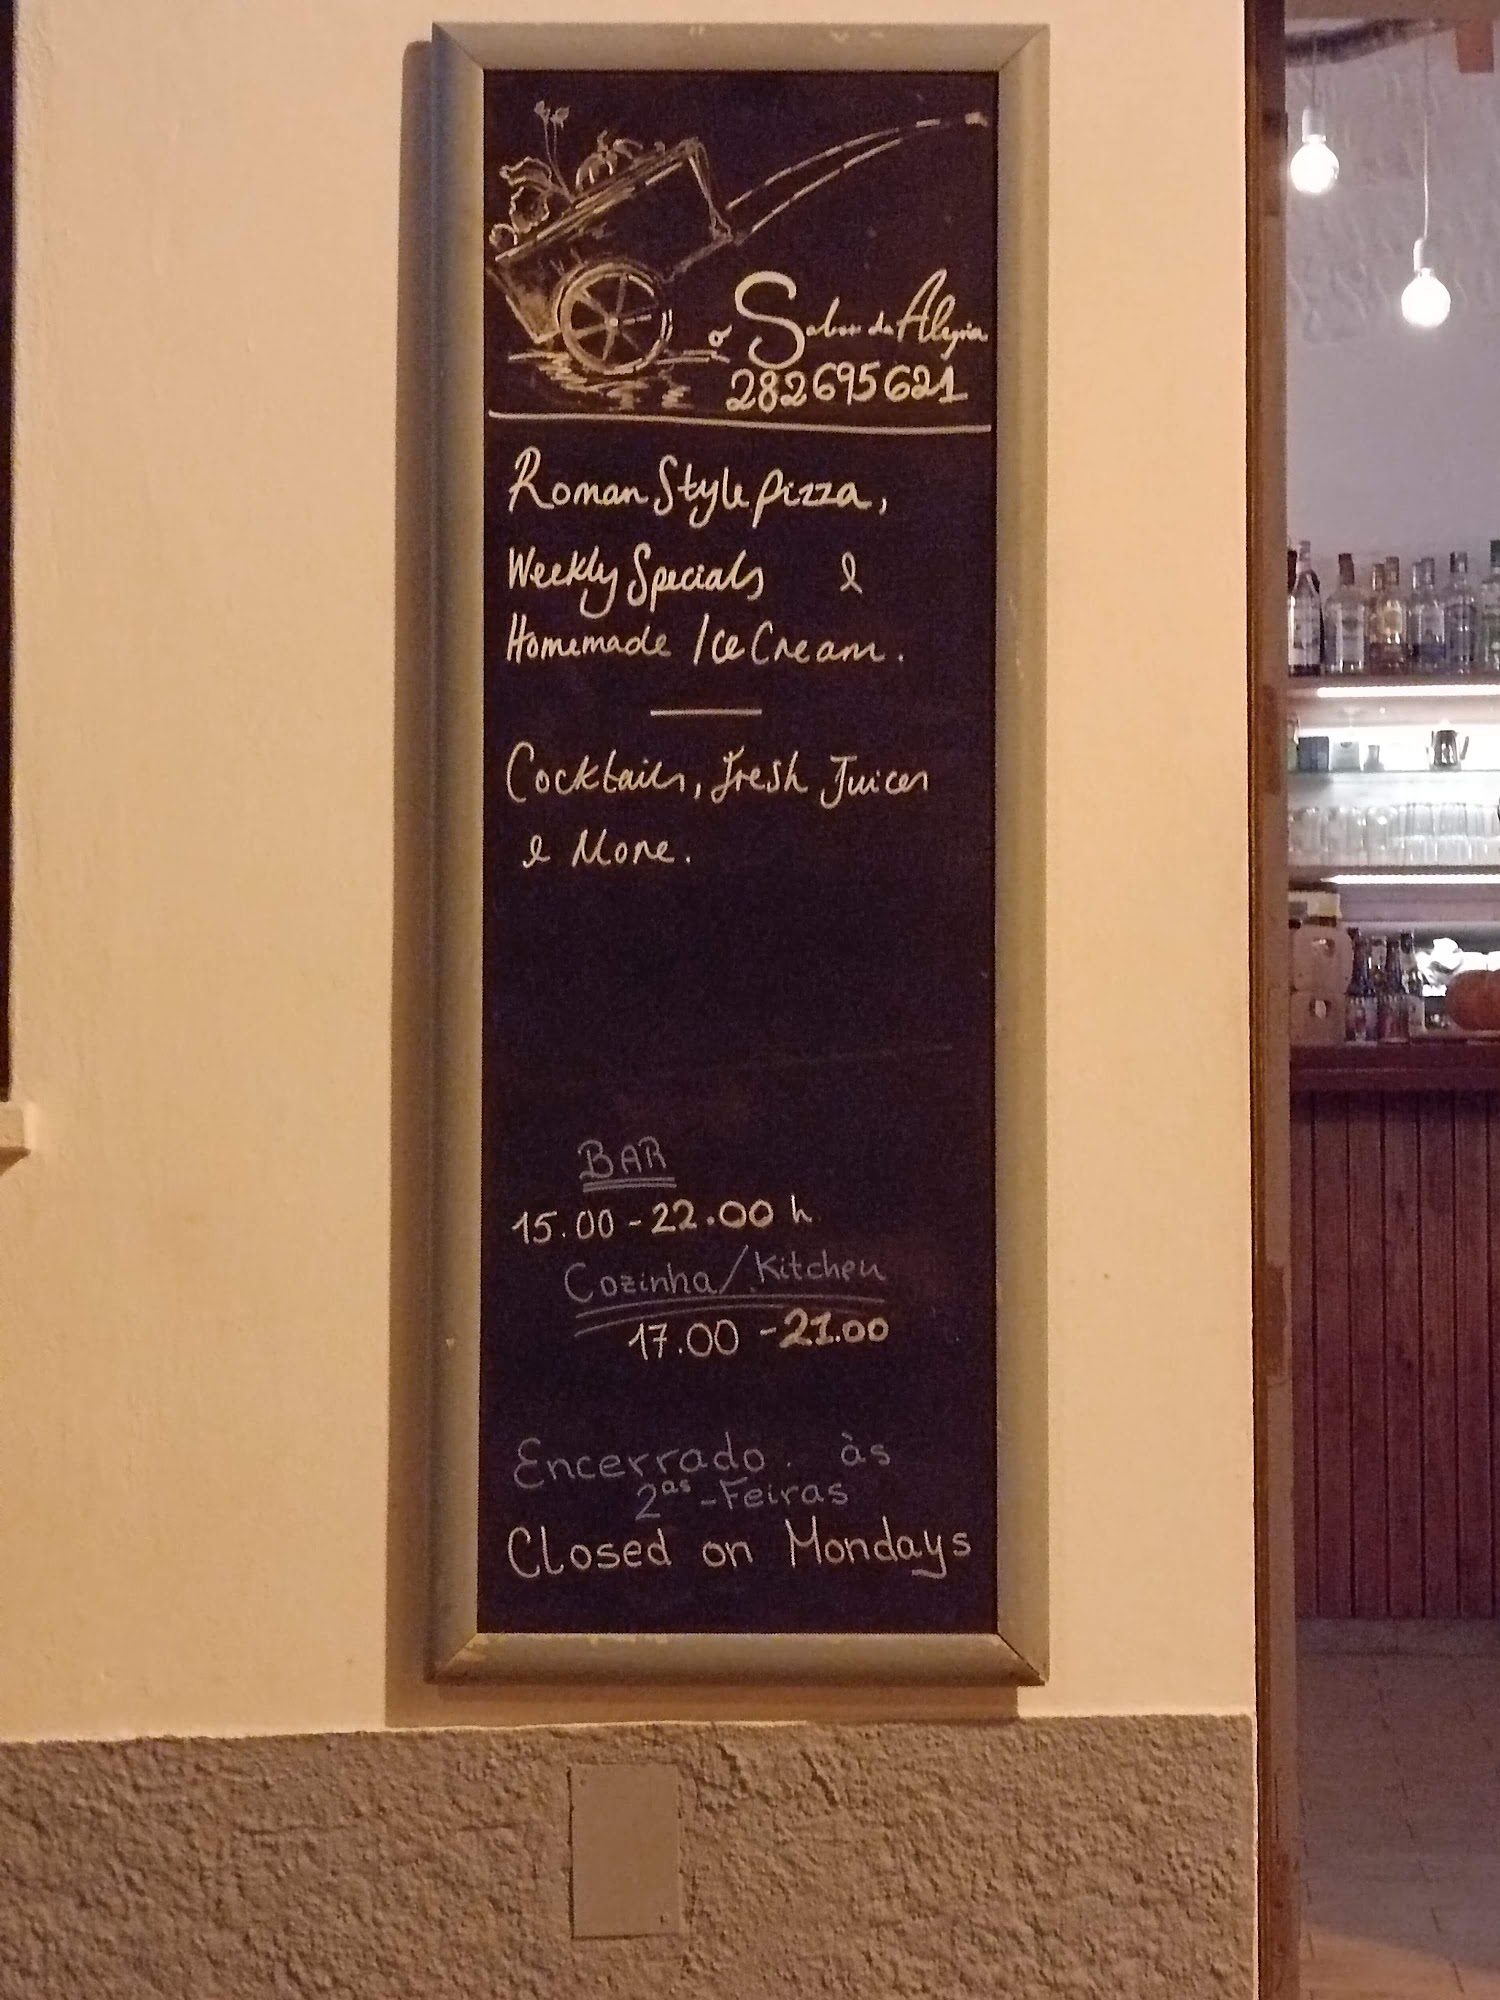 o Sabor da Alegria
282695621
Roman Style Pizza,
Weekly Specials &
Homemade Ice Cream.
Cocktails, Fresh Juices
& More.
BAR
15.00 - 22.00 h
Cozinha/Kitchen
17.00 - 21.00
Encerrado. às
2as-Feiras
Closed on Mondays